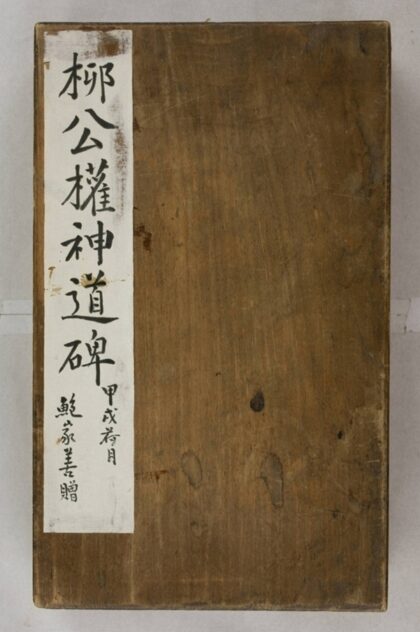 柳公權神道碑
甲戌荷月
鮑家善贈